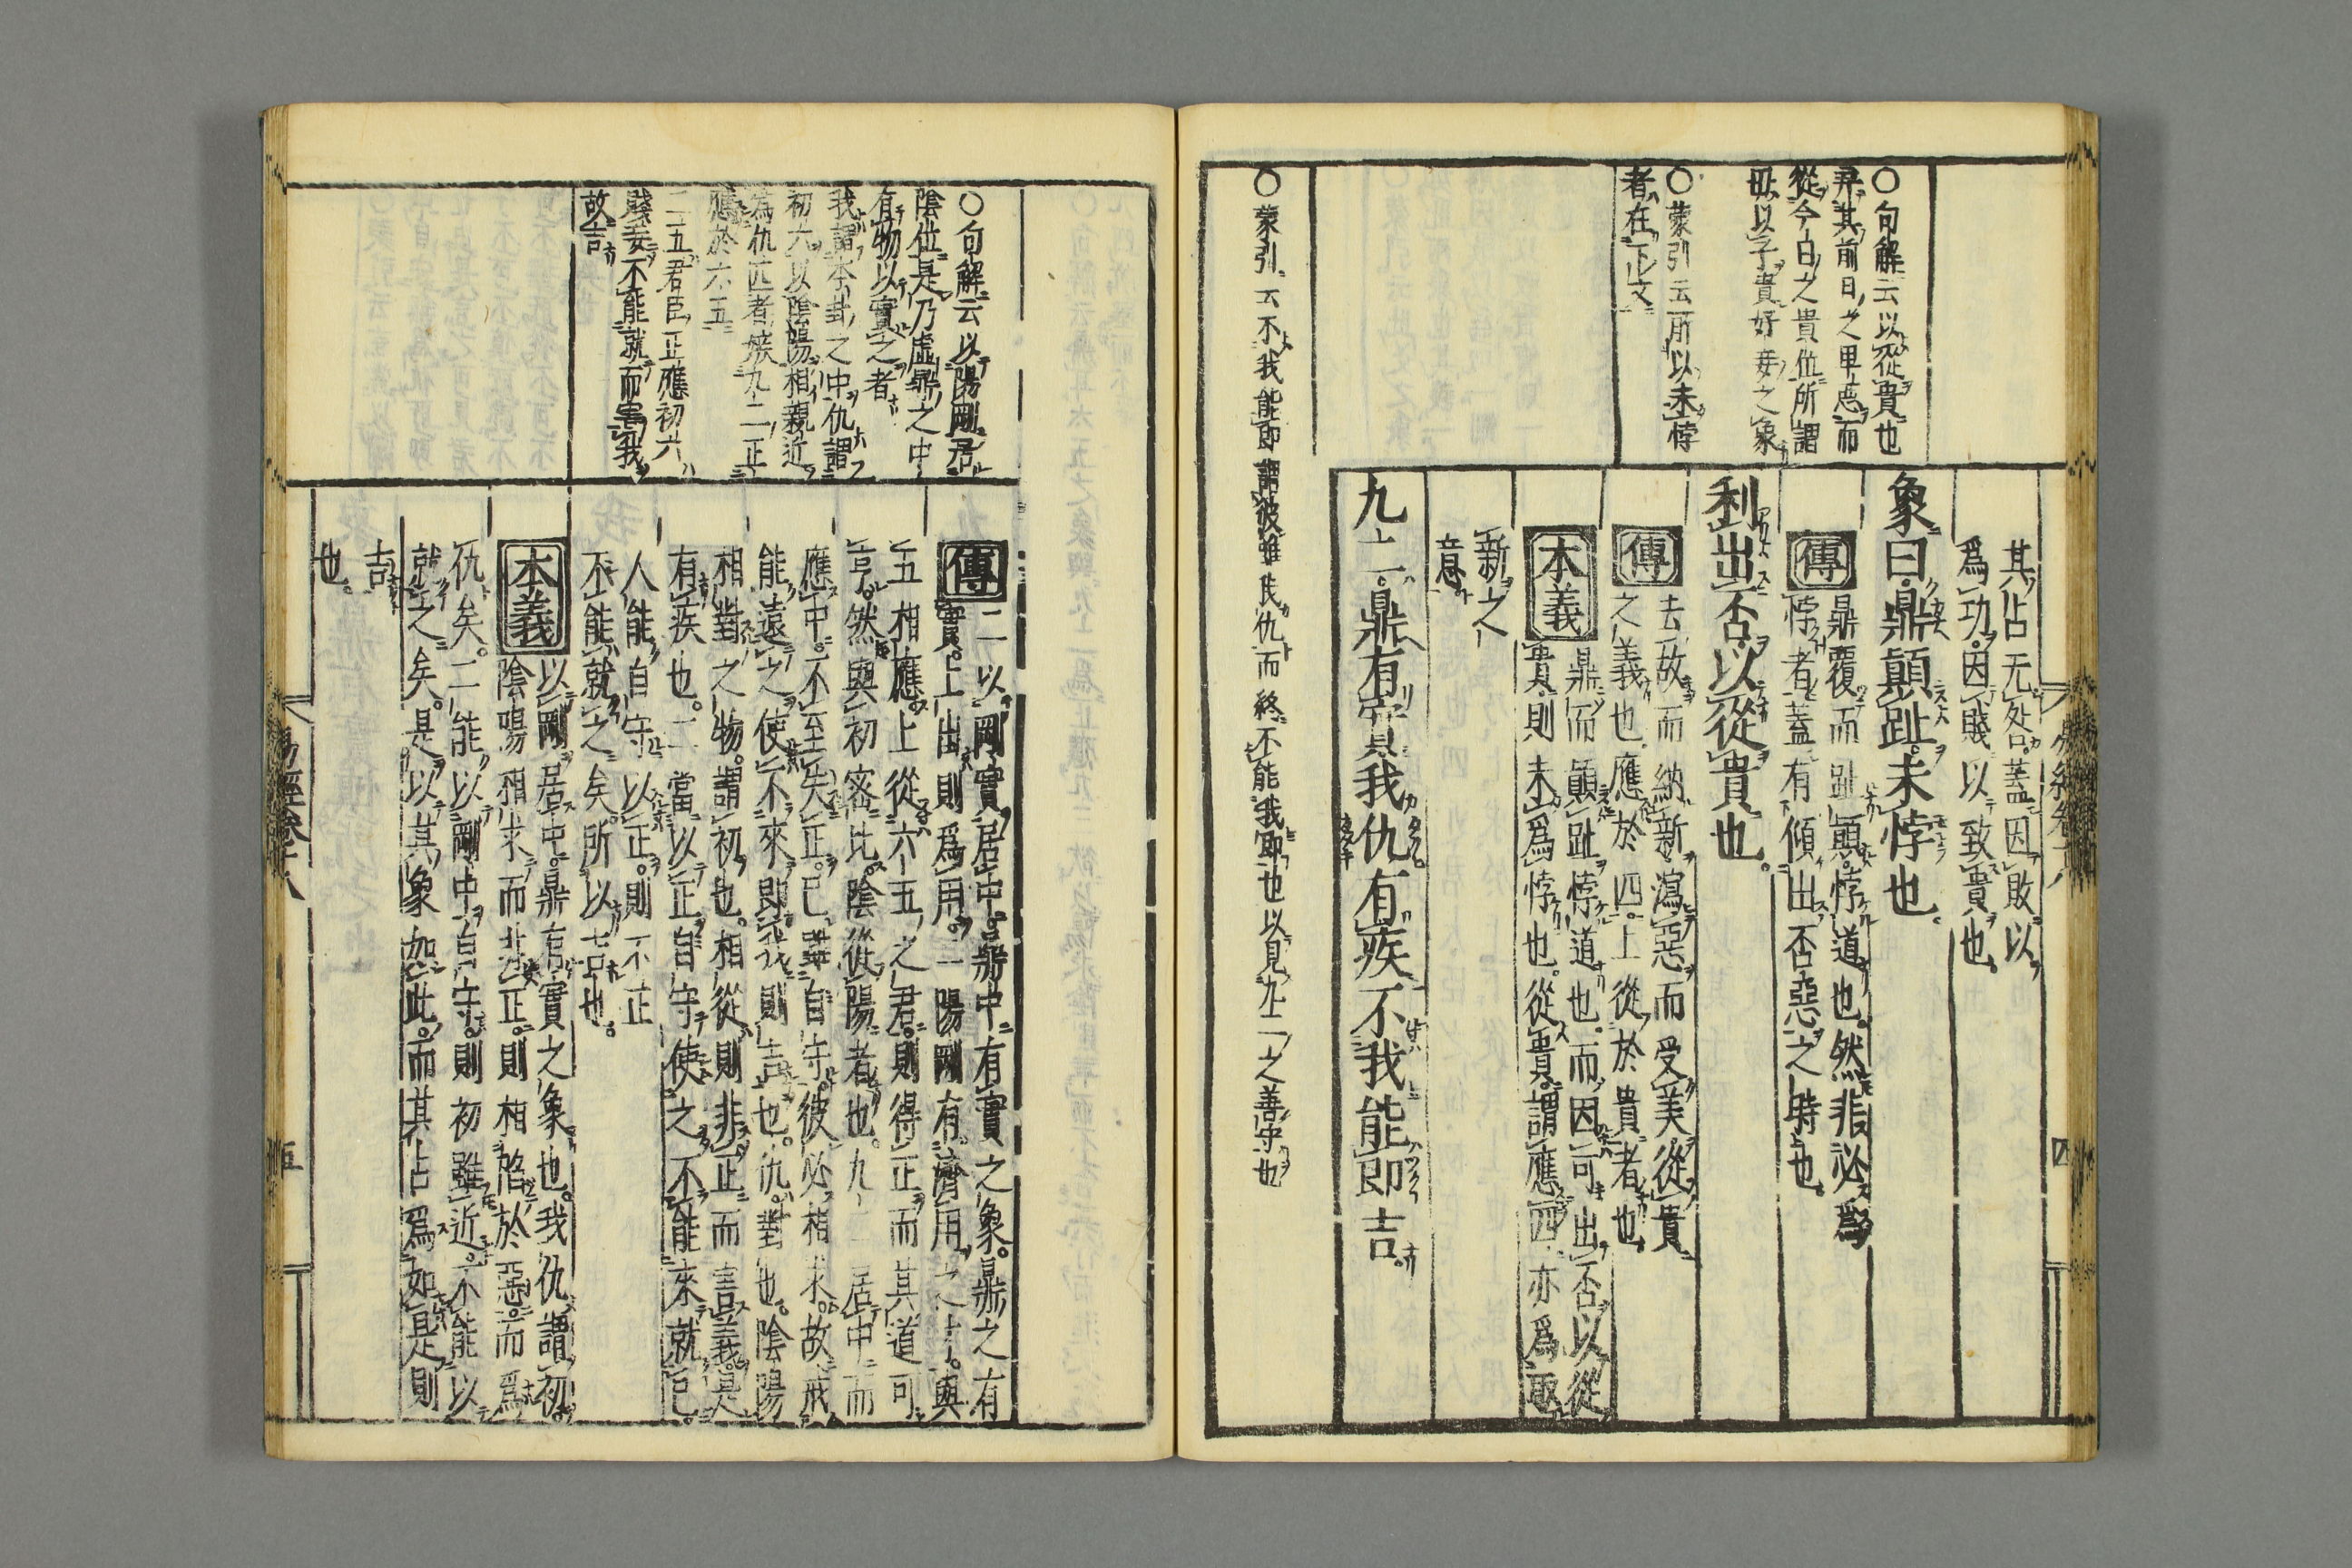 其占无咎。蓋因敗以
爲功。因賤以致貴也。
象曰。鼎顚趾。未悖也。
傳
鼎覆而趾顚。悖道也。然非必爲
悖者。蓋有傾出否惡之時也。
利出否。以從貴也。
傳
去故而納新。瀉惡而受美。從貴
之義也。應於四。上從於貴者也。
本義
鼎而顚趾。悖道也。而因可出否以從
貴。則未爲悖也。從貴。謂應四。亦爲取
新之
意。
九二。鼎有實。我仇有疾。不我能即。吉。
〇句解云以從貴也
弃其前日之卑惡而
從今日之貴位所謂
毋以子貴好妾之象
〇蒙引云所以未悖
者在下文
〇蒙引云不我能即謂彼雖我仇而終不能我即也以見九二之善守也
傳
二以剛實居中。鼎中有實之象。鼎之有
實。上出則爲用。二陽剛有濟用之才。與
五相應。上從六五之君。則得正而其道可
亨。然與初密比。陰從陽者也。九二居中而
應中。不至失正。已雖自守。彼必相求。故戒
能遠之。使不來即我則吉也。仇。對也。陰陽
相對之物。謂初也。相從則非正而害義。是
有疾也。二當以正自守。使之不能來就已。
人能自守以正。則不正
不能就之矣。所以吉也。
本義
以剛居中。鼎有實之象也。我仇謂初。
陰陽相求而非正。則相陷於惡。而爲
仇矣。二能以剛中自守。則初雖近。不能以
就之矣。是以其象如此。而其占爲如是則
吉
也。
〇句解云以陽剛居
陰位是乃虛鼎之中
有物以實之者
我謂本卦之中仇謂
初六以陰陽相親近
為仇匹者疾九二正
應於六五
二五君臣正應初六
賤妾不能就而害我
故吉
易經卷十八
五